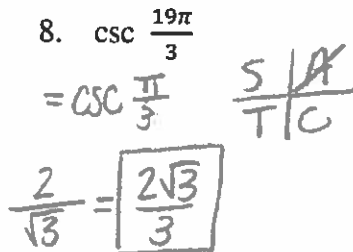 8. csc 19π/3
= csc π/3
S | A
T | C
2/√3 = 2√3/3